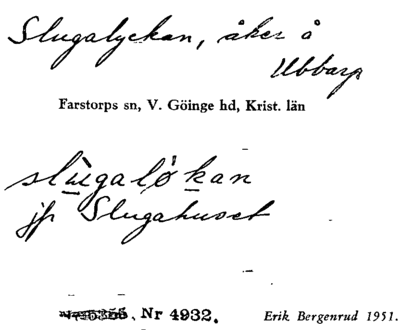 Slugalyckan, åker å
Ubbarp
Farstorps sn, V. Göinge hd, Krist. län
slùgaló̵kan
jfr Slugahuset
Nr 4932. Erik Bergenrud 1951.